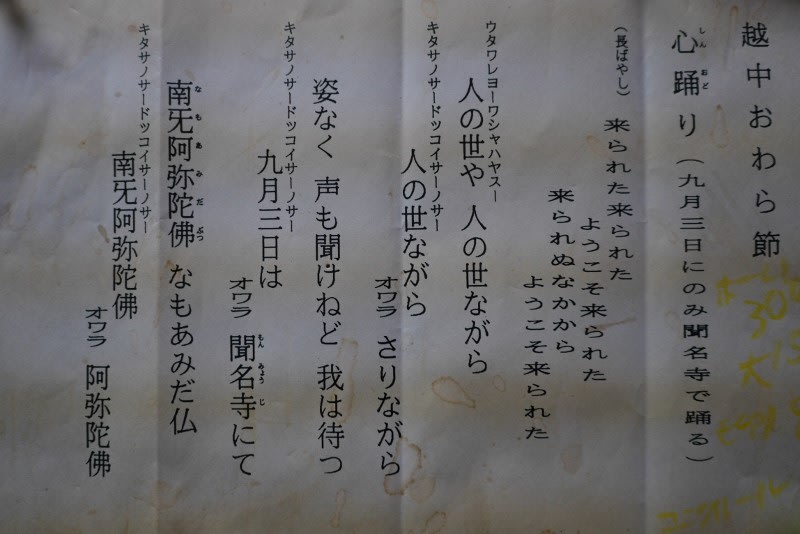 越中おわら節
心踊り（九月三日にのみ聞名寺で踊る）
しんおど
（長ばやし）来られた来られた
ようこそ来られた
来られぬなかから
ようこそ来られた
ウタワレヨーワシャハヤスー
人の世や 人の世ながら
キタサノサードッコイサーノサー
人の世ながら
オワラ さりながら
姿なく 声も聞けねど 我は待つ
キタサノサードッコイサーノサー
九月三日は
オワラ 聞名寺にて
もんみょうじ
南旡阿弥陀佛 なもあみだ仏
なもあみだぶつ
キタサノサードッコイサーノサー
南旡阿弥陀佛
オワラ 阿弥陀佛